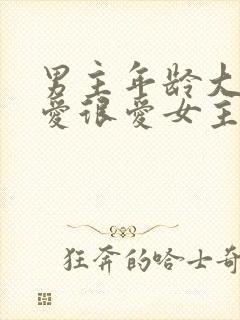 男主年龄大
爱很爱女主
狂奔的哈士奇